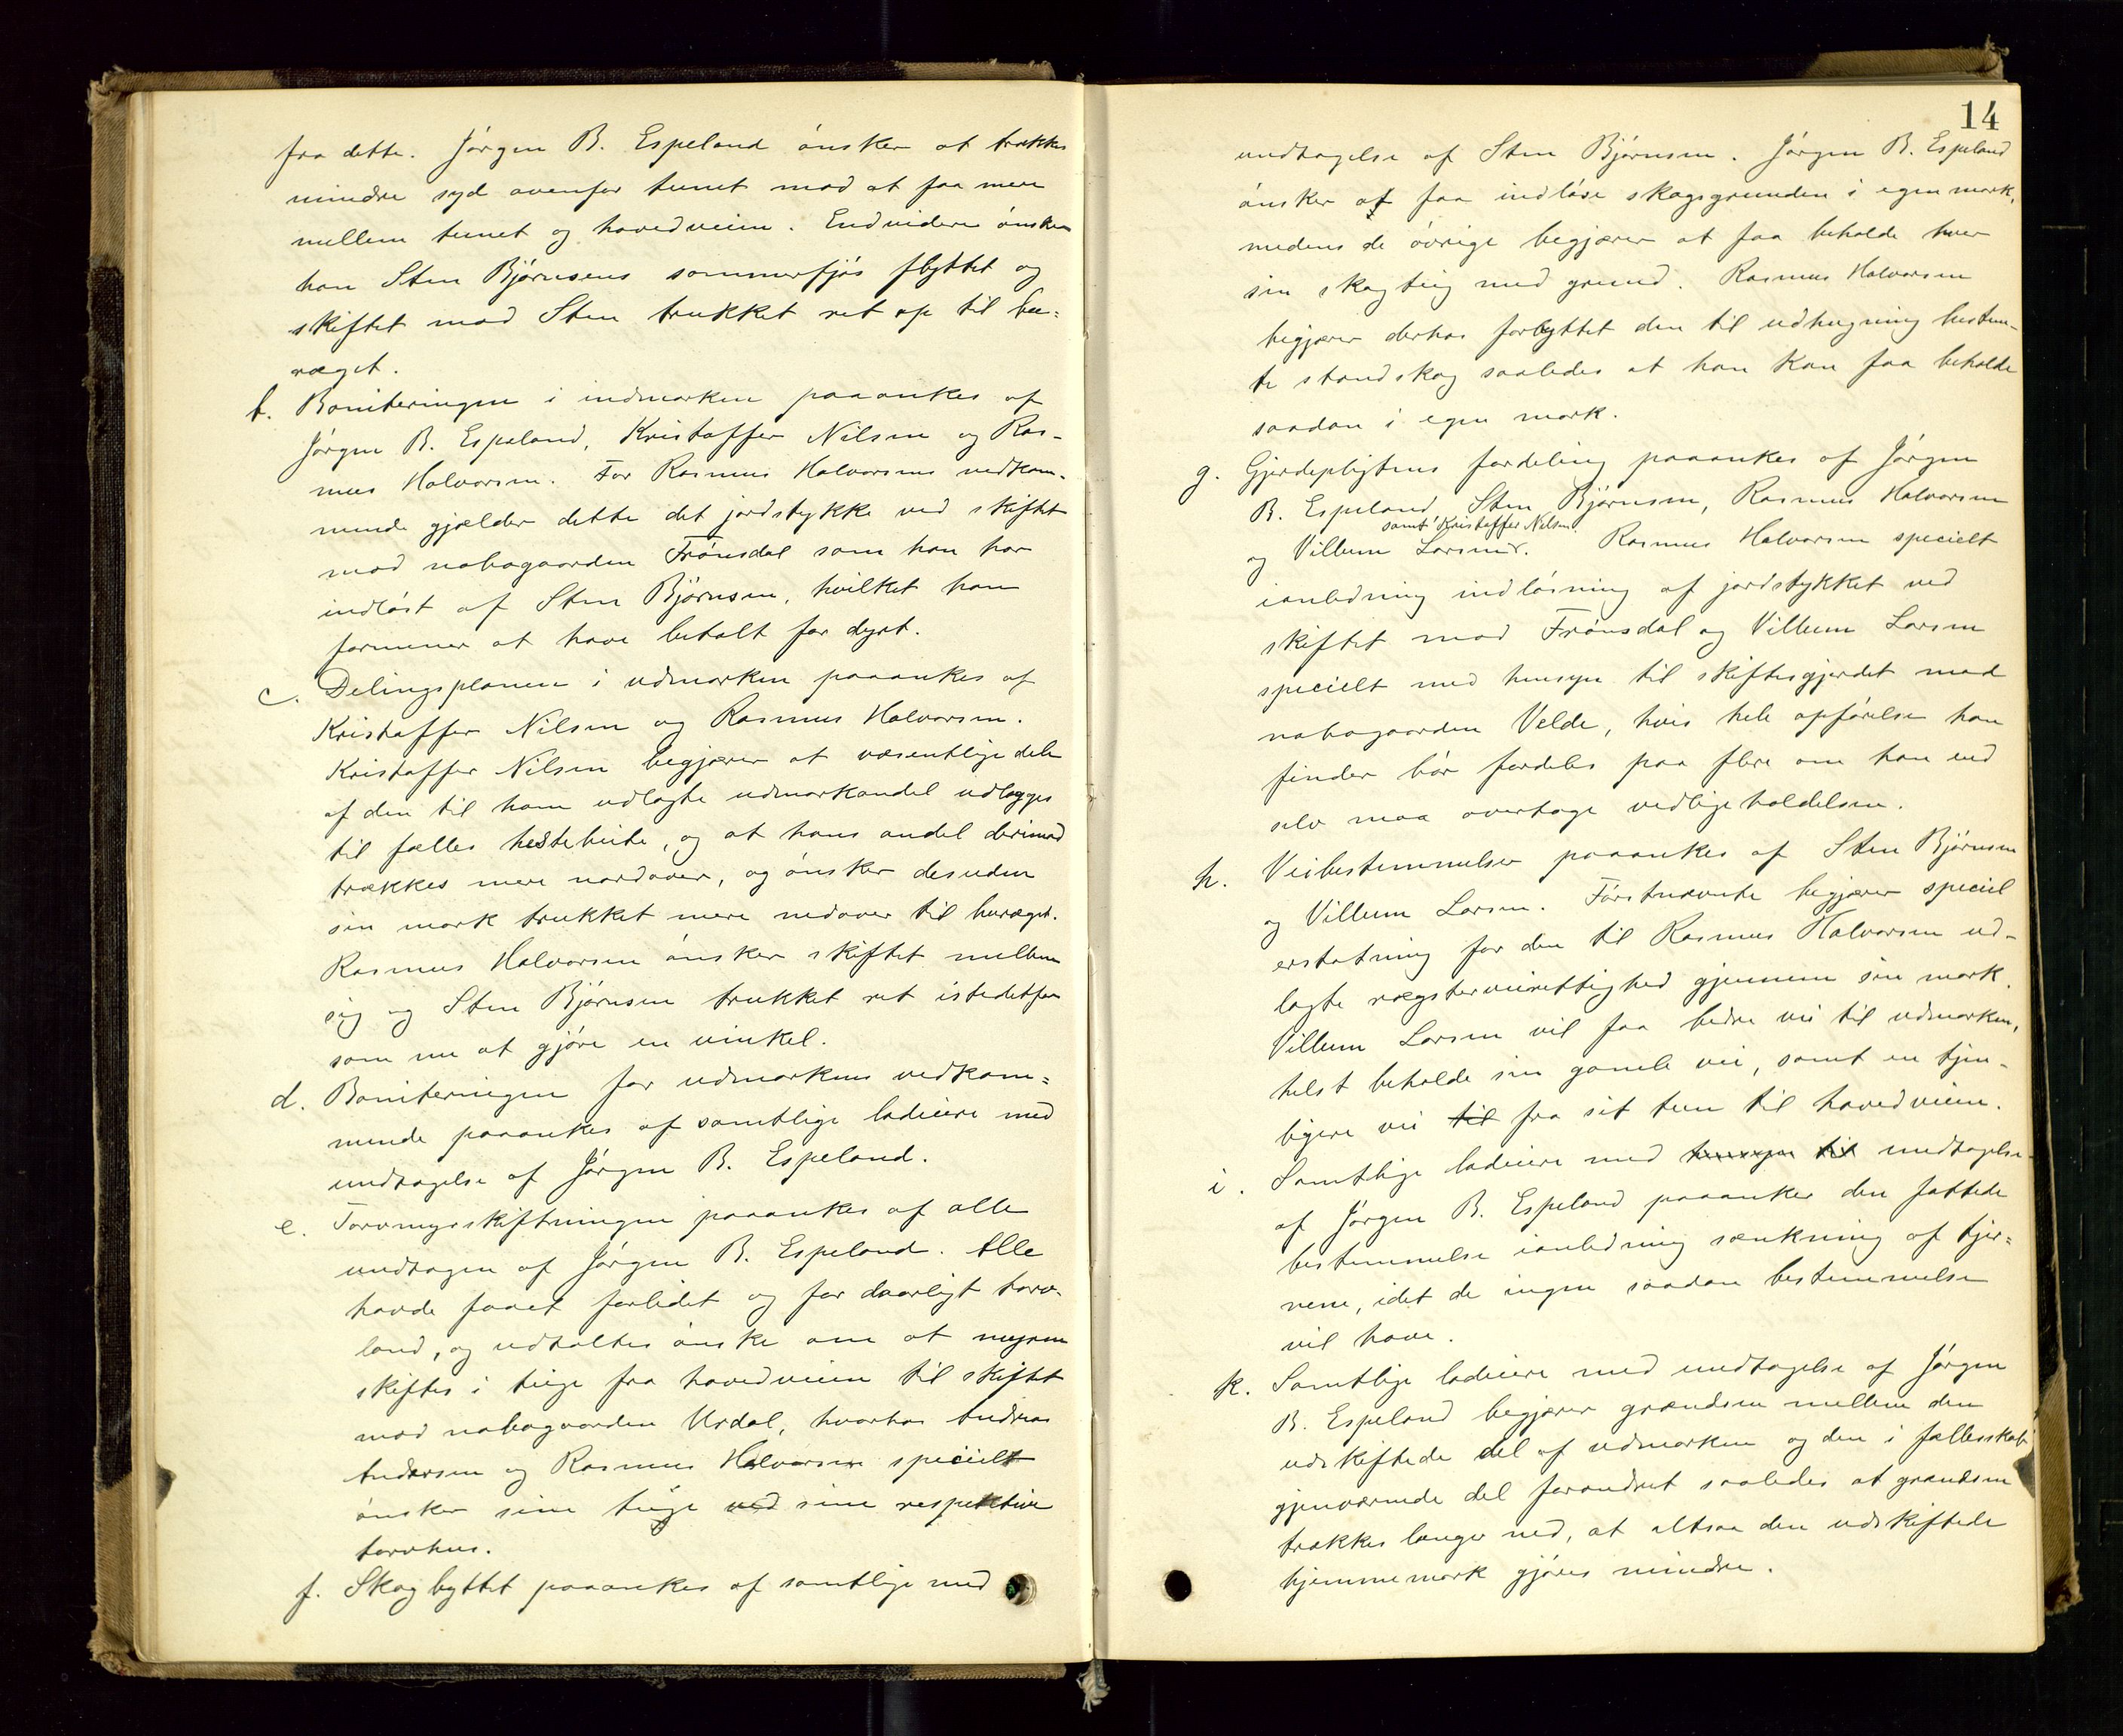 fra dette. Jörgen B. Espeland önsker at trukke
mindre syd ovenfor tunet mod at faa mere
mellem tunet og hovedveien. Endvidere önsker
han Sten Björnsens sommerfjös flyttet og
skiftet mod Sten trukket ret op til bu=
ræget.
b. Boniteringen i indmarken paaankes af
Jörgen B. Espeland, Kristoffer Nilsen og Ras-
mus Halvorsen. For Rasmus Halvorsens vedkom-
mende gjælder dette det jordstykke ved skiftet
mod nabogaarden Frönsdal som han har
indlöst af Sten Björnsen, hvilket han
formener at have betalt for dyrt.
c. Delingsplanen i udmarken paaankes af
Kristoffer Nilsen og Rasmus Halvorsen.
Kristoffer Nilsen begjærer at væsentlige dele
af den til ham udlagte udmarkandel udlægges
til fælles hestebeite, og at hans andel derimod
trækkes mere nordover, og önsker desuden
sin mark trukket mere nedover til buræget.
Rasmus Halvorsen önsker skiftet mellem
sig og Sten Björnsen trukket ret istedetfor
som nu at gjöre en vinkel.
d. Boniteringen for udmarkens vedkom=
mende paaankes af samtlige lodeiere med
undtagelse af Jörgen B. Espeland.
e. Torvmyrskiftningen paaankes af alle
undtagen af Jörgen B. Espeland. Alle
havde faaet forlidet og for daarligt torv-
land, og udtaltes önske om at myren
skiftes i teige fra hovedveien til skiftet
mod nabogaarden Urdal, hvorhos Andreas
Andersen og Rasmus Halvorsen specielt
önsker sine teige ved sine respektive
torvhus.
f. Skogbyttet paaankes af samtlige med
14
undtagelse af Sten Björnsen. Jörgen B. Espeland
önsker at faa indlöse skogsgrunden i egen mark,
medens de övrige begjærer at faa beholde hver
sin skogteig med grund. Rasmus Halvorsen
begjærer derhos forbyttet den til udhugning bestem-
te standskog saaledes at han kan faa beholde
saadan i egen mark.
g. Gjerdepligtens fordeling paaankes af Jörgen
B. Espeland, Sten Björnsen, Rasmus Halvorsen
samt Kristoffer Nilsen.
og Villum Larsen. Rasmus Halvorsen specielt
ianledning indlösning af jordstykket ved
skiftet mod Frönsdal og Villum Larsen
specielt med hensyn til skiftesgjerdet mod
nabogaarden Velde, hvis hele opförelse han
finder bör fordeles paa flere om han end
selv maa overtage vedligeholdelsen.
h. Veibestemmelser paaankes af Sten Björnsen
og Villum Larsen. Förstnævnte begjærer speciel
erstatning for den til Rasmus Halvorsen ud-
lagte rægsterveirettighed gjennem sin mark.
Villum Larsen vil faa bedre vei til udmarken,
helst beholde sin gamle vei, samt en tjen-
ligere vei til fra sit tun til hovedveien.
i. Samtlige lodeiere med hensyn til undtagelse
af Jörgen B. Espeland paaanker den fattede
bestemmelse ianledning sænkning af tjer=
nene, idet de ingen saadan bestemmelse
vil have.
k. Samtlige lodeiere med undtagelse af Jörgen
B. Espeland begjærer grændsen mellem den
udskiftede del af udmarken og den i fællesskab
gjenværende del forandret saaledes at grændsen
trækkes længer ned, at altsaa den udskiftede
hjemmemark gjöres mindre.